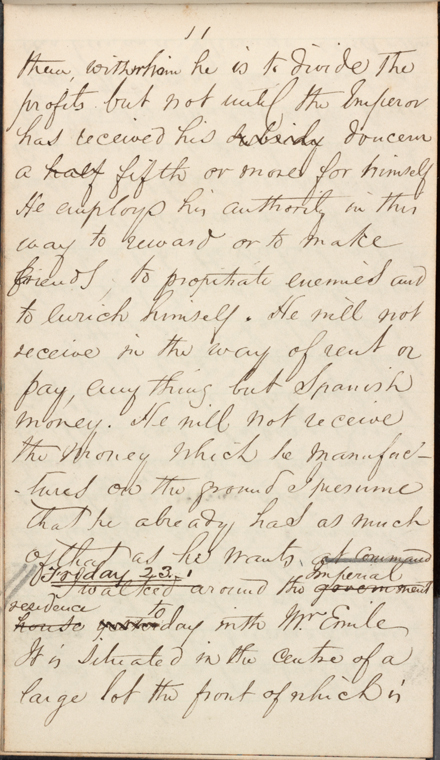 11
them, with whom he is to divide the
profits but not until the Emperor
has received his subsidy douceur
a half fifth or more for himself
He employs his authority in this
way to reward or to make
friends, to propitiate enemies and
to enrich himself. He will not
receive in the way of rent or
pay, any thing but Spanish
money. He will not receive
the money which he manufac-
-tures on the ground I presume
that he already has as much
of that as he wants. at command
Friday 23. Imperial
I walked around the government
residence to
house yesterday with Mr. Emile
It is situated in the centre of a
large lot the front of which is